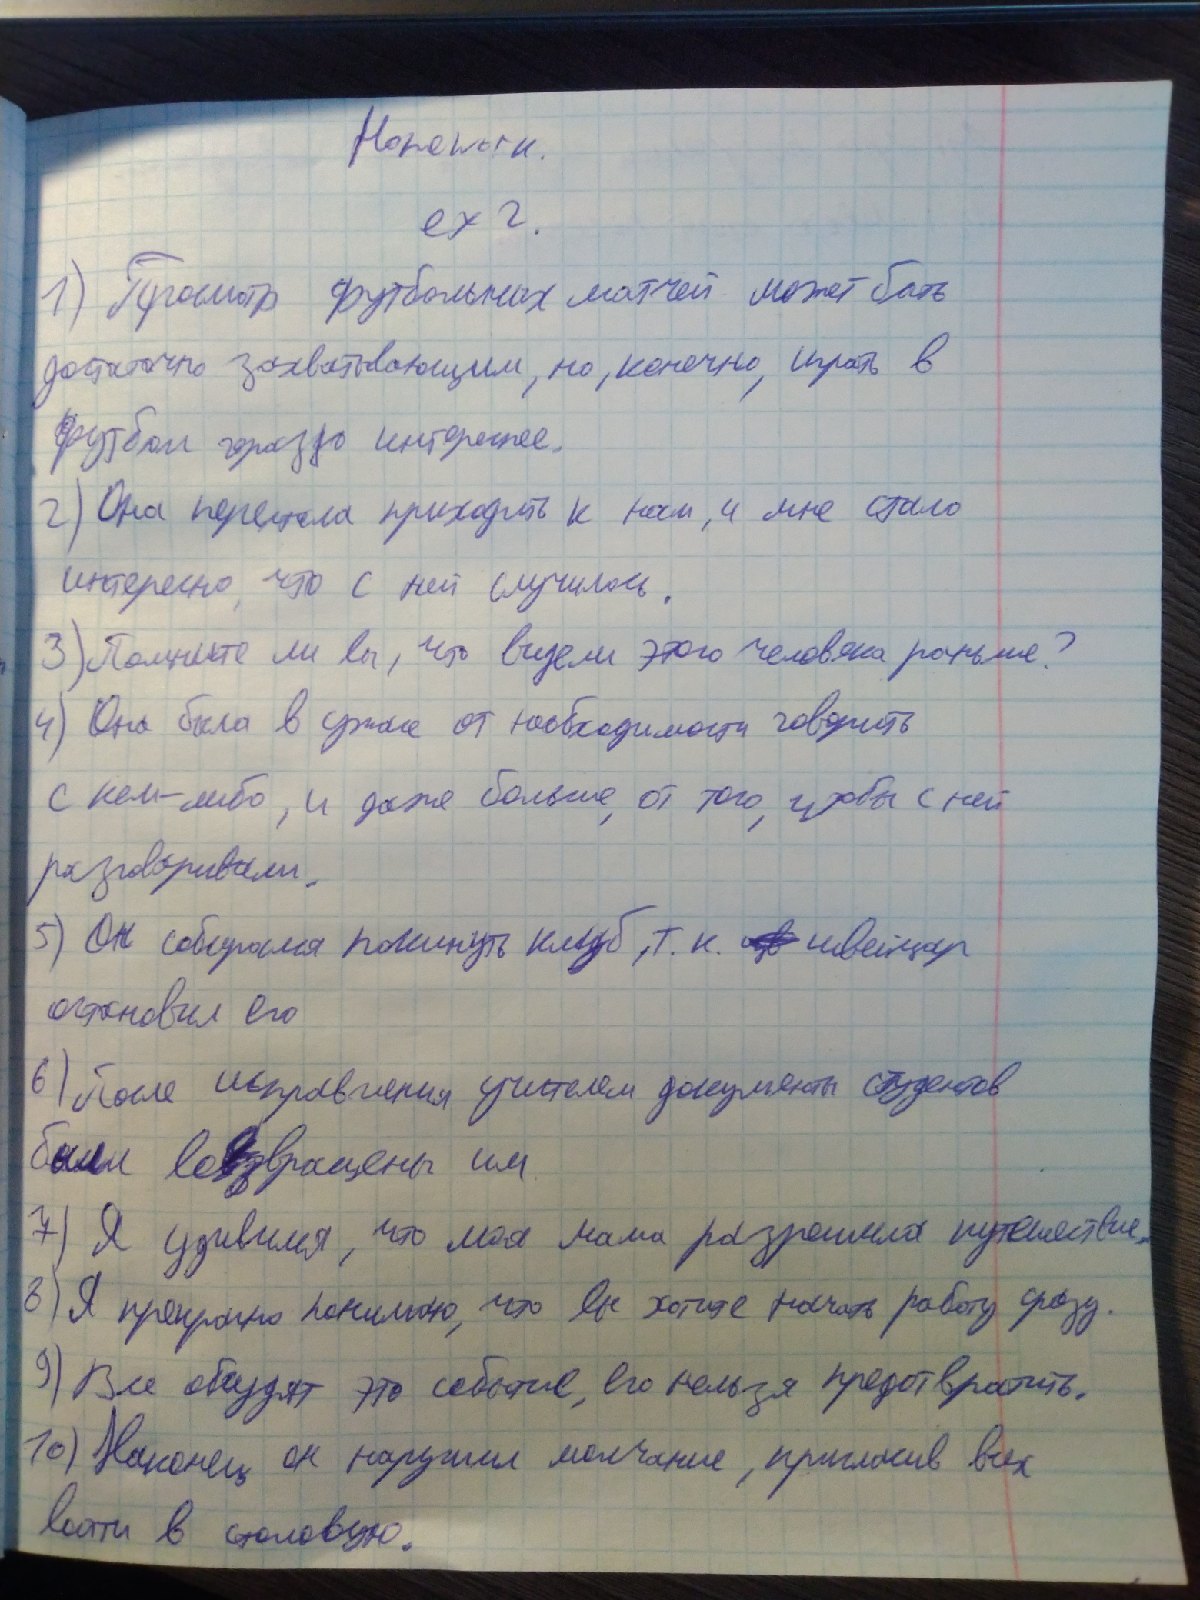 Homework.
ex 2.
1) Просмотр футбольных матчей может быть
достаточно захватывающим, но, конечно, играть в
футбол гораздо интереснее.
2) Она перестала приходить к нам, и мне стало
интересно, что с ней случилось.
3) Помните ли вы, что видели этого человека раньше?
4) Она была в ужасе от необходимости говорить
с кем-либо, и даже больше, от того, чтобы с ней
разговаривали.
5) Он собирался покинуть клуб, т. к. швейцар
остановил его
6) После исправления учителем документы студентов
были возвращены им
7) Я удивился, что моя мама разрешила путешествие.
8) Я прекрасно понимаю, что вы хотите начать работу сразу.
9) Все обсудят это событие, его нельзя предотвратить.
10) Наконец он нарушил молчание, пригласив всех
войти в столовую.